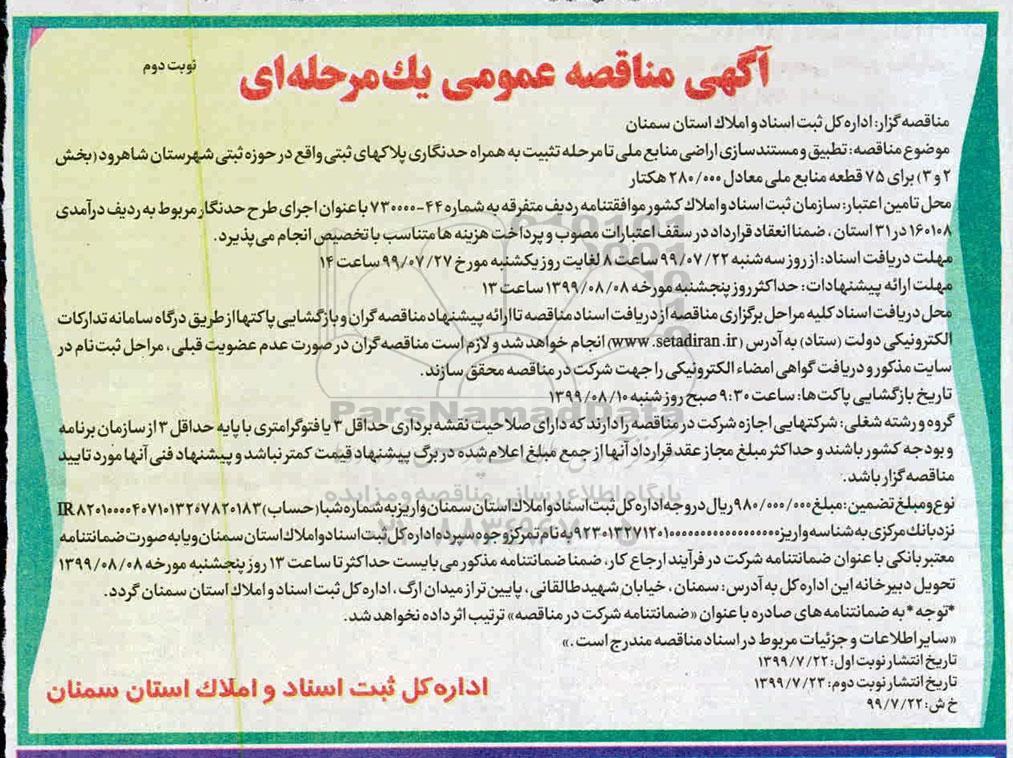 آگهی مناقصه عمومی یك مرحله‌ای
نوبت دوم
مناقصه گزار: اداره کل ثبت اسناد و املاك استان سمنان
موضوع مناقصه: تطبیق و مستندسازی اراضی منابع ملی تا مرحله تثبیت به همراه حدنگاری پلاکهای ثبتی واقع در حوزه ثبتی شهرستان شاهرود (بخش
۲ و ۳) برای ۷۵ قطعه منابع ملی معادل ۲۸۰/۰۰۰ هکتار
محل تامین اعتبار: سازمان ثبت اسناد و املاك کشور موافقتنامه ردیف متفرقه به شماره ۴۴-۷۳۰۰۰۰ با عنوان اجرای طرح حدنگار مربوط به ردیف درآمدی
۱۶۰۱۰۸ در ۳۱ استان ، ضمنا انعقاد قرارداد در سقف اعتبارات مصوب و پرداخت هزینه ها متناسب با تخصیص انجام می پذیرد.
مهلت دریافت اسناد: از روز سه شنبه ۹۹/۰۷/۲۲ ساعت ۸ لغایت روز یکشنبه مورخ ۹۹/۰۷/۲۷ ساعت ۱۴
مهلت ارائه پیشنهادات: حداکثر روز پنجشنبه مورخه ۱۳۹۹/۰۸/۰۸ ساعت ۱۳
محل دریافت اسناد کلیه مراحل برگزاری مناقصه از دریافت اسناد مناقصه تا ارائه پیشنهاد مناقصه گران و بازگشایی پاکتها از طریق درگاه سامانه تدارکات
الکترونیکی دولت (ستاد) به آدرس (www.setadiran.ir) انجام خواهد شد و لازم است مناقصه گران در صورت عدم عضویت قبلی ، مراحل ثبت نام در
سایت مذکور و دریافت گواهی امضاء الکترونیکی را جهت شرکت در مناقصه محقق سازند.
تاریخ بازگشایی پاکت ها: ساعت ۹:۳۰ صبح روز شنبه ۱۳۹۹/۰۸/۱۰
ParsNamadData
گروه و رشته شغلی: شرکتهایی اجازه شرکت در مناقصه را دارند که دارای صلاحیت نقشه برداری حداقل ۳ یا فتوگرامتری با پایه حداقل ۳ از سازمان برنامه
و بودجه کشور باشند و حداکثر مبلغ مجاز عقد قرارداد آنها از جمع مبلغ اعلام شده در برگ پیشنهاد قیمت کمتر نباشد و پیشنهاد فنی آنها مورد تایید
مناقصه گزار باشد.
پایگاه اطلاع رسانی مناقصه و مزایده
نوع و مبلغ تضمین: مبلغ ۹۸۰/۰۰۰/۰۰۰ ریال در وجه اداره کل ثبت اسناد و املاك استان سمنان واریز به شماره شبا (حساب) IR ۸۲۰۱۰۰۰۰۴۰۷۱۰۱۳۲۰۷۸۲۰۱۸۳
به نام تمرکز وجوه سپرده اداره کل ثبت اسناد و املاك استان سمنان و یا به صورت ضمانتنامه
معتبر بانکی با عنوان ضمانتنامه شرکت در فرآیند ارجاع کار، ضمنا ضمانتنامه مذکور می بایست حداکثر تا ساعت ۱۳ روز پنجشنبه مورخه ۱۳۹۹/۰۸/۰۸
تحویل دبیرخانه این اداره کل به آدرس: سمنان ، خیابان شهید طالقانی، پایین تر از میدان ارگ ، اداره کل ثبت اسناد و املاك استان سمنان گردد.
*توجه* به ضمانتنامه های صادره با عنوان «ضمانتنامه شرکت در مناقصه» ترتیب اثر داده نخواهد شد.
«سایر اطلاعات و جزئیات مربوط در اسناد مناقصه مندرج است.»
تاریخ انتشار نوبت اول: ۱۳۹۹/۷/۲۲
تاریخ انتشار نوبت دوم: ۱۳۹۹/۷/۲۳
خ ش: ۹۹/۷/۲۲
اداره کل ثبت اسناد و املاك استان سمنان